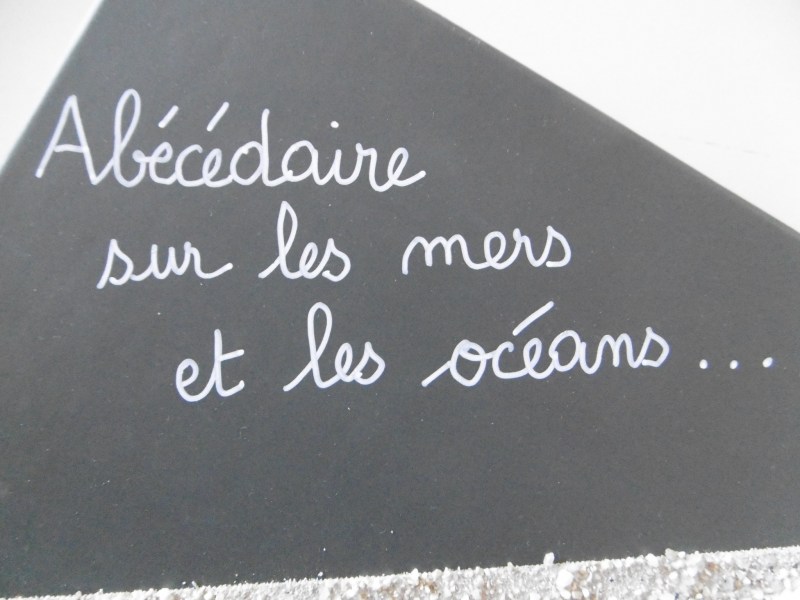 Abécédaire
sur les mers
et les océans...